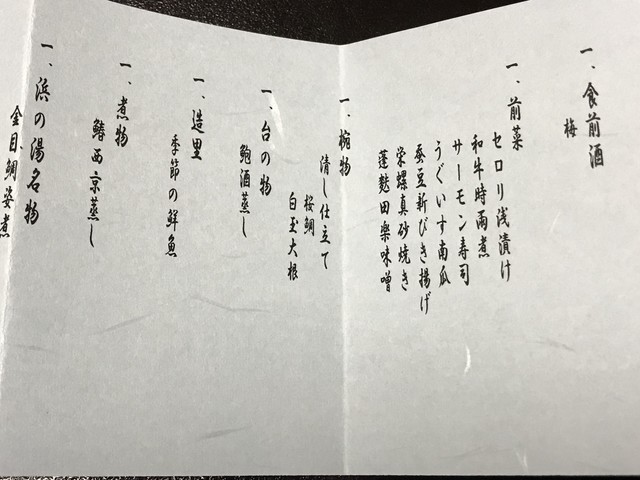 一、食前酒
梅
一、前菜
セロリ浅漬け
和牛時雨煮
サーモン寿司
うぐいす南瓜
蚕豆新びき揚げ
栄螺真砂焼き
蓬麩田楽味噌
一、椀物
清し仕立て
桜鯛
白玉大根
一、台の物
鮑酒蒸し
一、造里
季節の鮮魚
一、煮物
鰆西京蒸し
一、浜の湯名物
金目鯛姿煮